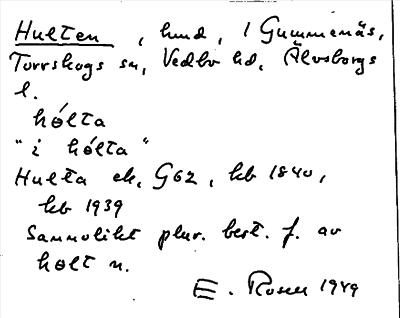 Hulten, lund, / Gummenäs,
Torrskogs sn, Vedbo hd, Älvsborgs
l.
hólta
"i hólta"
Hulta ek, G62, kb 1840,
kb 1939
Sannolikt plur. best. f. av
holt n.
E. Rosen 1949